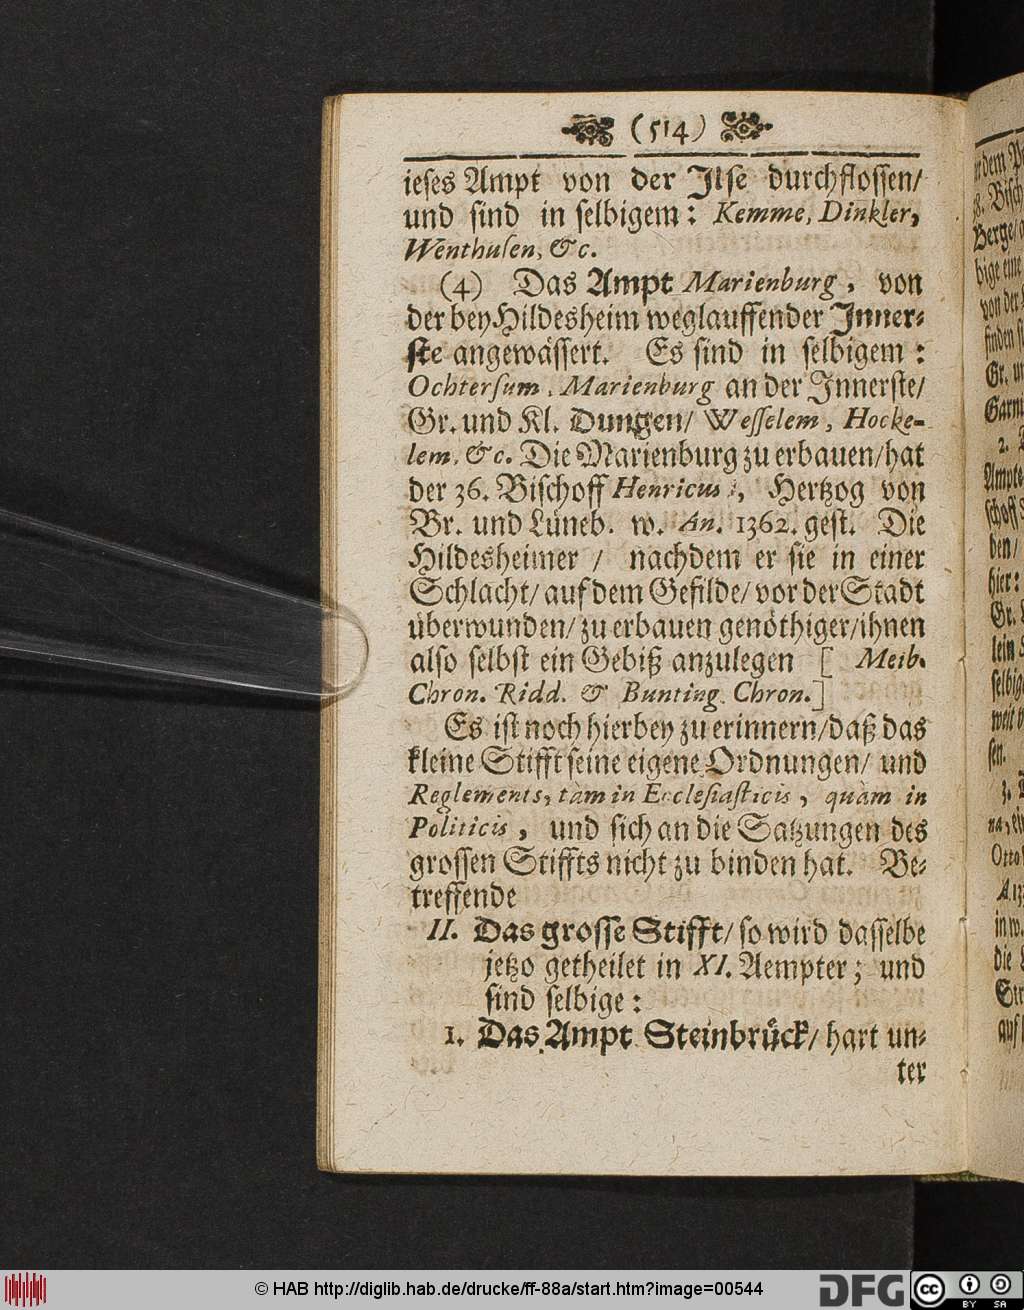 (514)
ieses Ampt von der Ilse durchflossen/
und sind in selbigem: Kemme, Dinkler,
Wenthuſen, &c.
(4) Das Ampt Marienburg, von
der bey Hildesheim weglauffender Inner-
ste angewässert. Es sind in selbigem:
Ochterſum, Marienburg an der Innerste/
Gr. und Kl. Dungen/ Weſſelem, Hocke-
lem, &c. Die Marienburg zu erbauen/hat
der 36. Bischoff Henricus, Hertzog von
Br. und Lüneb. w. An. 1362. gest. Die
Hildesheimer / nachdem er sie in einer
Schlacht/ auf dem Gefilde/ vor der Stadt
überwunden/ zu erbauen genöthiger/ihnen
also selbst ein Gebiß anzulegen [ Meib.
Chron. Ridd. & Bunting. Chron.]
Es ist noch hierbey zu erinnern/daß das
kleine Stifft seine eigene Ordnungen/ und
Reglements, tàm in Eccleſiaſticis, quàm in
Politicis, und sich an die Satzungen des
grossen Stiffts nicht zu binden hat. Be-
treffende
II. Das grosse Stifft/ so wird dasselbe
jetzo getheilet in XI. Aempter; und
sind selbige:
1. Das Ampt Steinbrück/ hart un-
ter
© HAB http://diglib.hab.de/drucke/ff-88a/start.htm?image=00544
DFG
cc
BY SA